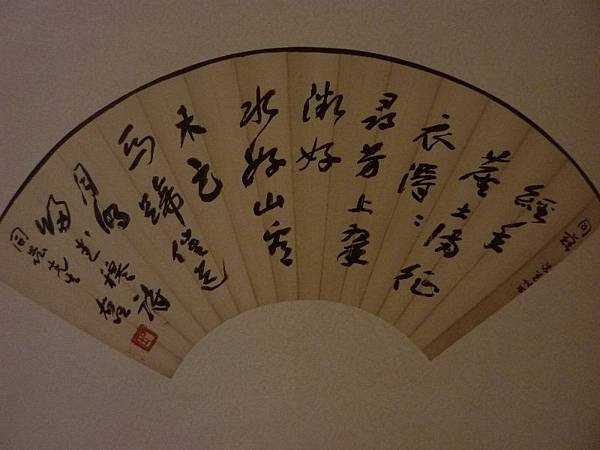 經年
塵土滿征
衣得得
尋芳上翠
微好
水好山看
未足
馬蹄催趁
月明
歸 武穆詩
先生
右任